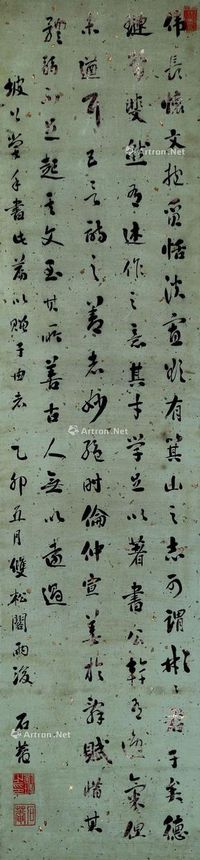 偉長懷文抱質恬淡寡欲有箕山之志可謂彬〻君子矣德
璉常斐然有述作之意其才學足以著書公幹有逸氣但
未遒耳五言詩之善者妙絕時倫仲宣善於辭賦惜其
體弱不足起其文至其所善古人無以遠過
坡公嘗手書此以子由者 乙卯五月雙松閣雨後 石菴
Artron.Net
Artron.Net
Artron.Net
Artron.Net
Artron.Net